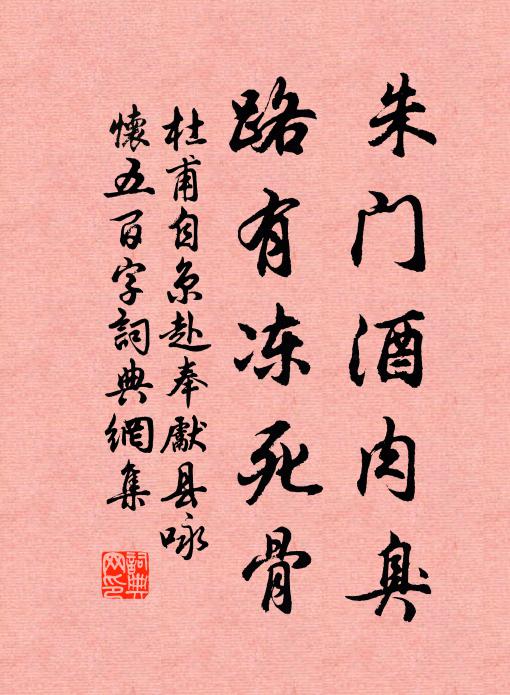 朱门酒肉臭
路有冻死骨
杜甫自京赴奉献县咏
懷五百字詞典網集
詞典网印